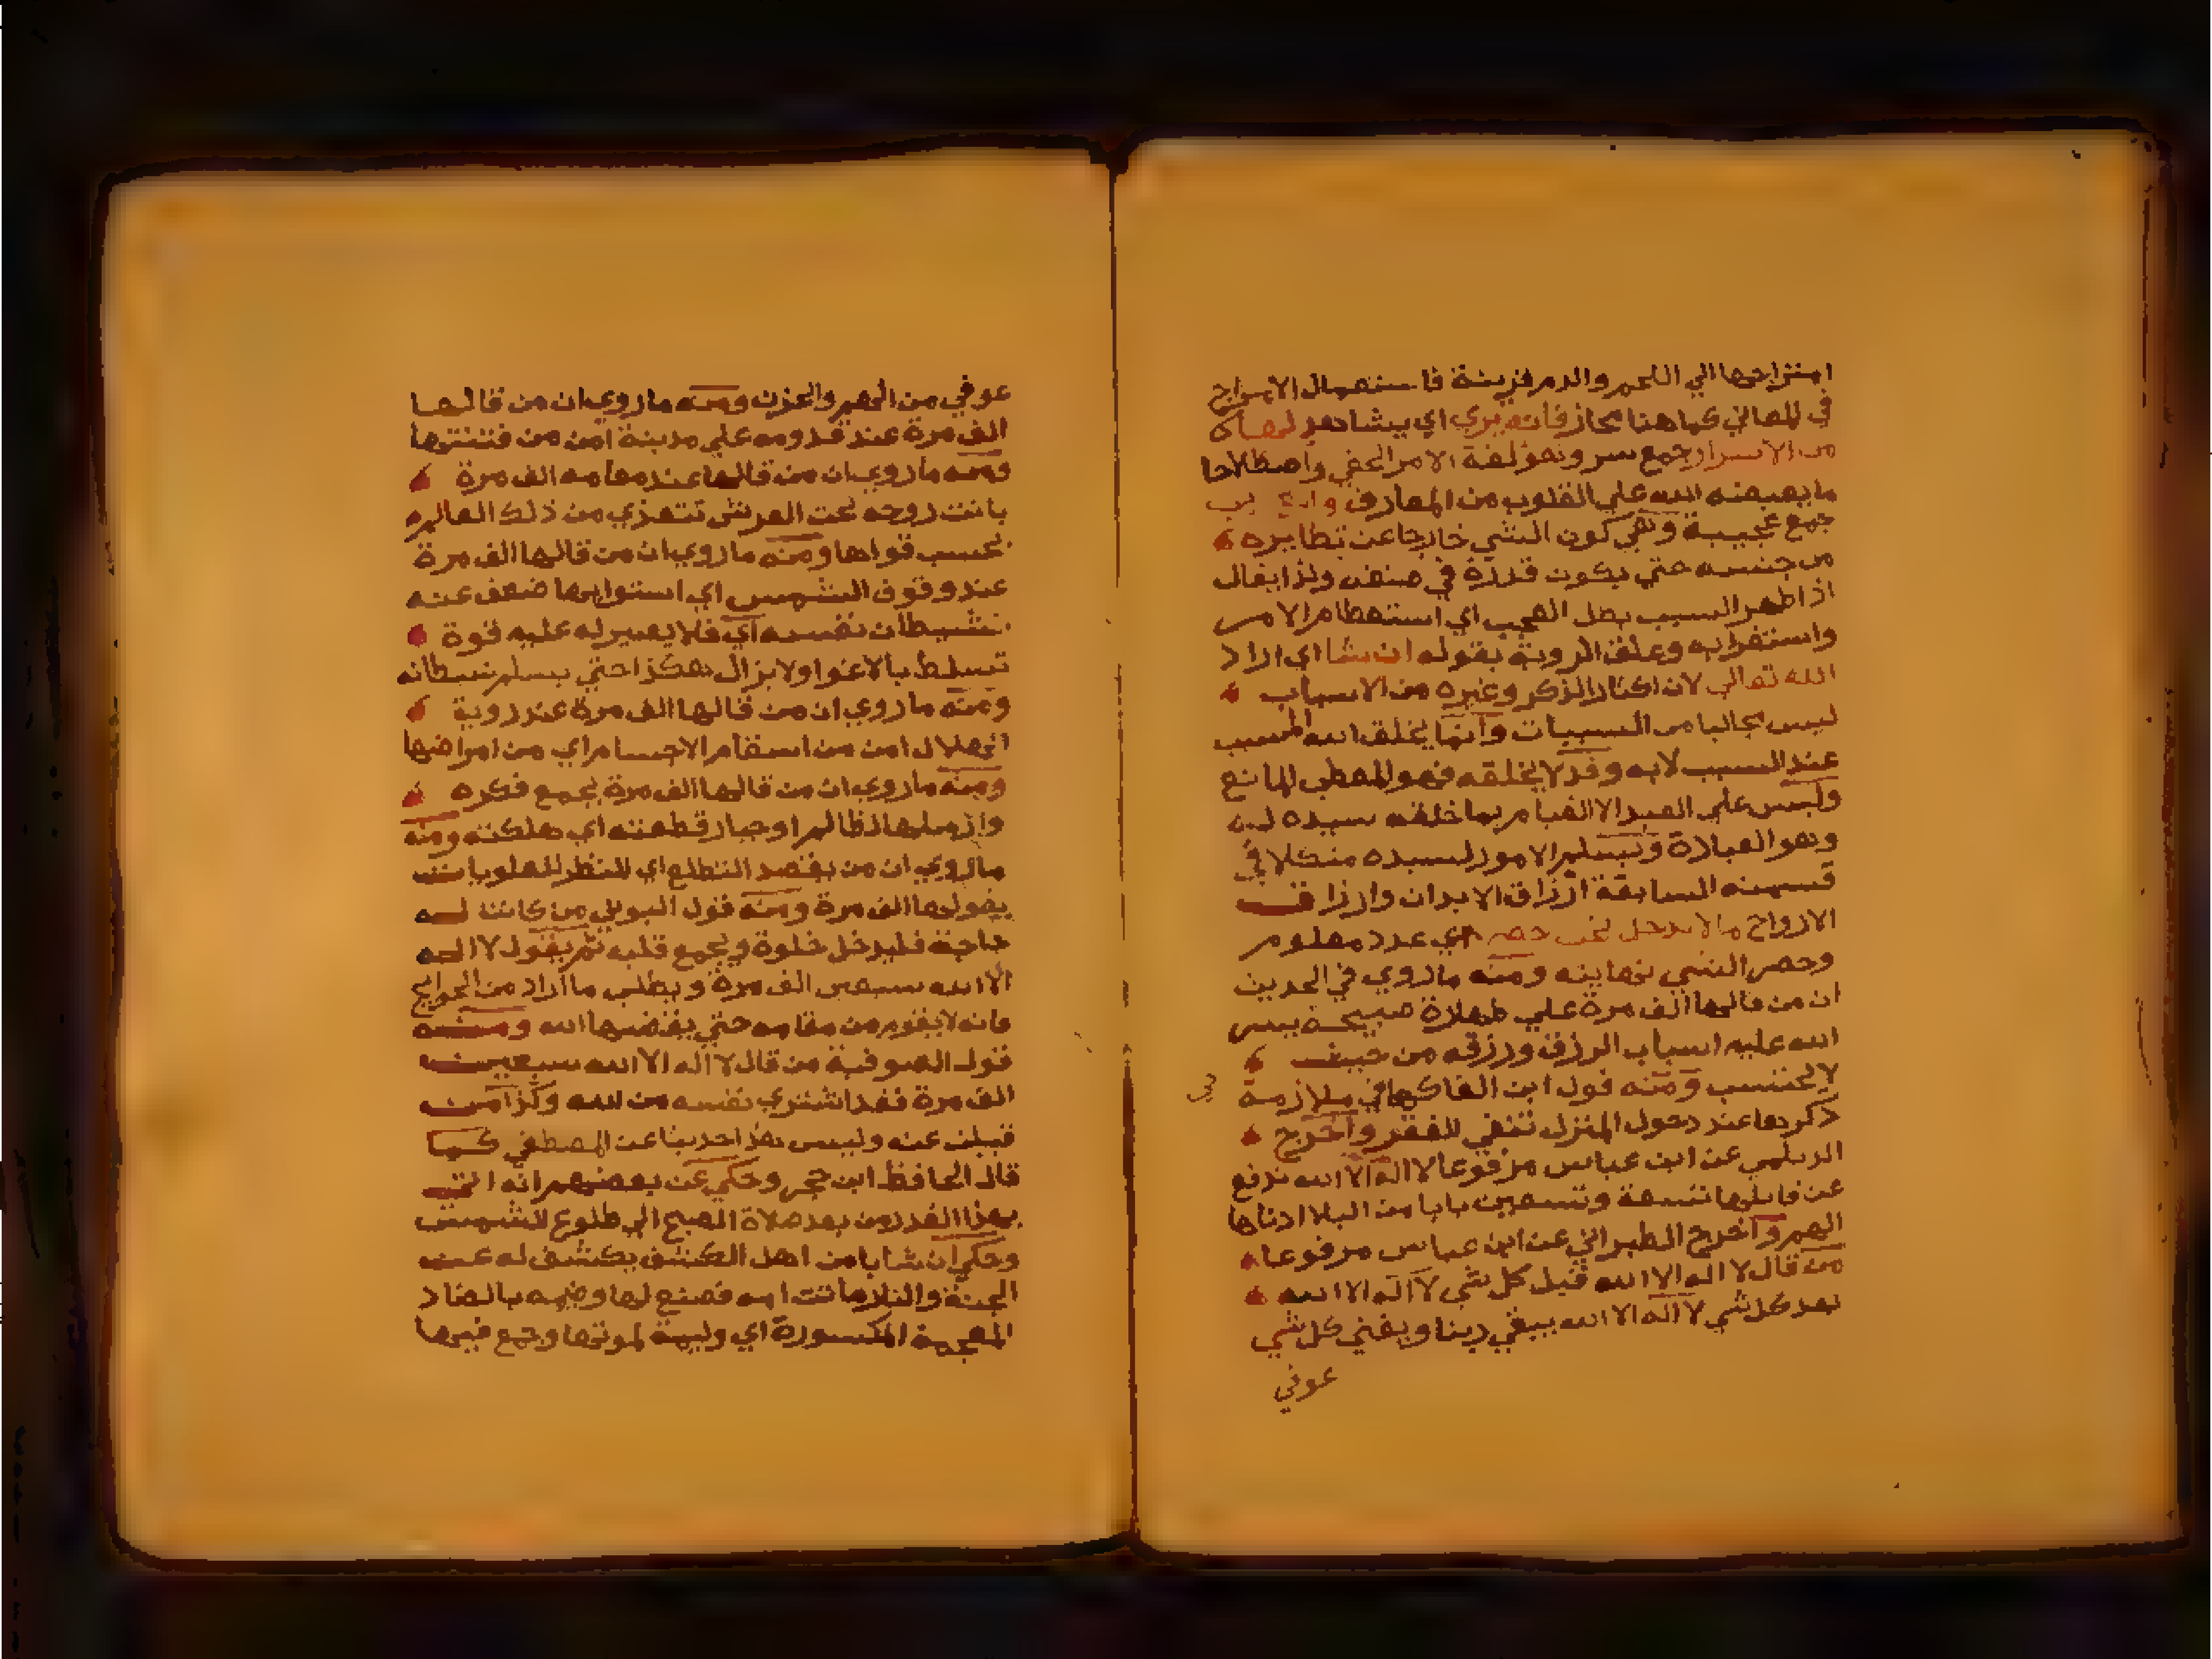 امتزاجها الي اللحم والدم قرينة فاستعمال الامتزاج
في المعاني كما هنا مجاز فانه يري اي يشاهد لها
من الاسرار جمع سر وهو لغة الامر الخفي واصطلاحا
ما يفيضه الله علي القلوب من المعارف
جمع عجيبة وهي كون الشي خارجا عن نظايره
من جنسه حتي يكون قدرة في صنفه ولذا يقال
اذا ظهر السبب بطل العجب اي استعظام الامر
واستغرابه وعلق الروية بقوله ان شا اي اراد
الله تعالي لان اكثار الذكر وغيره من الاسباب
ليس جالبا من المسببات وانما يخلق الله المسبب
عند السبب لا به وقد لا يخلقه فهو المعطي المانع
وليس علي العبد الا القيام بما خلقه سيده له
وهو العبادة وتسليم الامور لسيده متكلا في
قسمته السابقة ارزاق الابدان وارزاق
الارواح ما لا يدخل تحت حصر اي عدد معلوم
وحصر الشي نهايته ومنه ما روي في الحديث
ان من قالها الف مرة علي طهارة صبيحة يسر
الله عليه اسباب الرزق ورزقه من حيث
لا يحتسب ومنه قول ابن الفاكهاني ملازمة
ذكرها عند دخول المنزل تنفي الفقر واخرج
الديلمي عن ابن عباس مرفوعا لا اله الا الله تدفع
عن قايلها تسعة وتسعين بابا من البلا ادناها
الهم واخرج الطبراني عن ابن عباس مرفوعا
من قال لا اله الا الله قبل كل شي لا اله الا الله
بعد كل شي لا اله الا الله يبقي ربنا ويفني كل شي
عوفي
عوفي من الهم والحزن ومنه ما روي ان من قالها
الف مرة عند قدومه علي مدينة امن من فتنتها
ومنه ما روي ان من قالها عند منامه الف مرة
باتت روحه تحت العرش تتغذي من ذلك العالم
بحسب قواها ومنه ما روي ان من قالها الف مرة
عند وقوف الشمس اي استوايها ضعف عنه
شيطان نفسه اي فلا يصير له عليه قوة
تسلط بالاغوا ولا يزال هكذا حتي يسلم شيطانه
ومنه ما روي ان من قالها الف مرة عند روية
الهلال امن من اسقام الاجسام اي من امراضها
ومنه ما روي ان من قالها الف مرة بجمع فكره
وارسلها لظالم او جبار قطعته اي هلكته ومنه
ما روي ان من يقصد التطلع اي النظر للعلويات
يقولها الف مرة ومنه قول البوني من كانت له
حاجة فليدخل خلوة ويجمع قلبه ثم يقول لا اله
الا الله سبعين الف مرة ويطلب ما اراد من الحوايج
فانه لا يقوم من مقامه حتي يقضيها الله ومنه
قول الصوفية من قال لا اله الا الله سبعين
الف مرة فقد اشتري نفسه من الله وكذا من
قيلت عنه وليس هذا حديثا عن المصطفي كما
قال الحافظ ابن حجر وحكي عن بعضهم انه اتي
بهذا القدر من بعد صلاة الصبح الي طلوع الشمس
وحكي ان شابا من اهل الكشف يكشف له عن
الجنة والنار ماتت امه فصنع لها وضيمة بالضاد
المعجمة المكسورة اي وليمة لموتها وجمع فيها